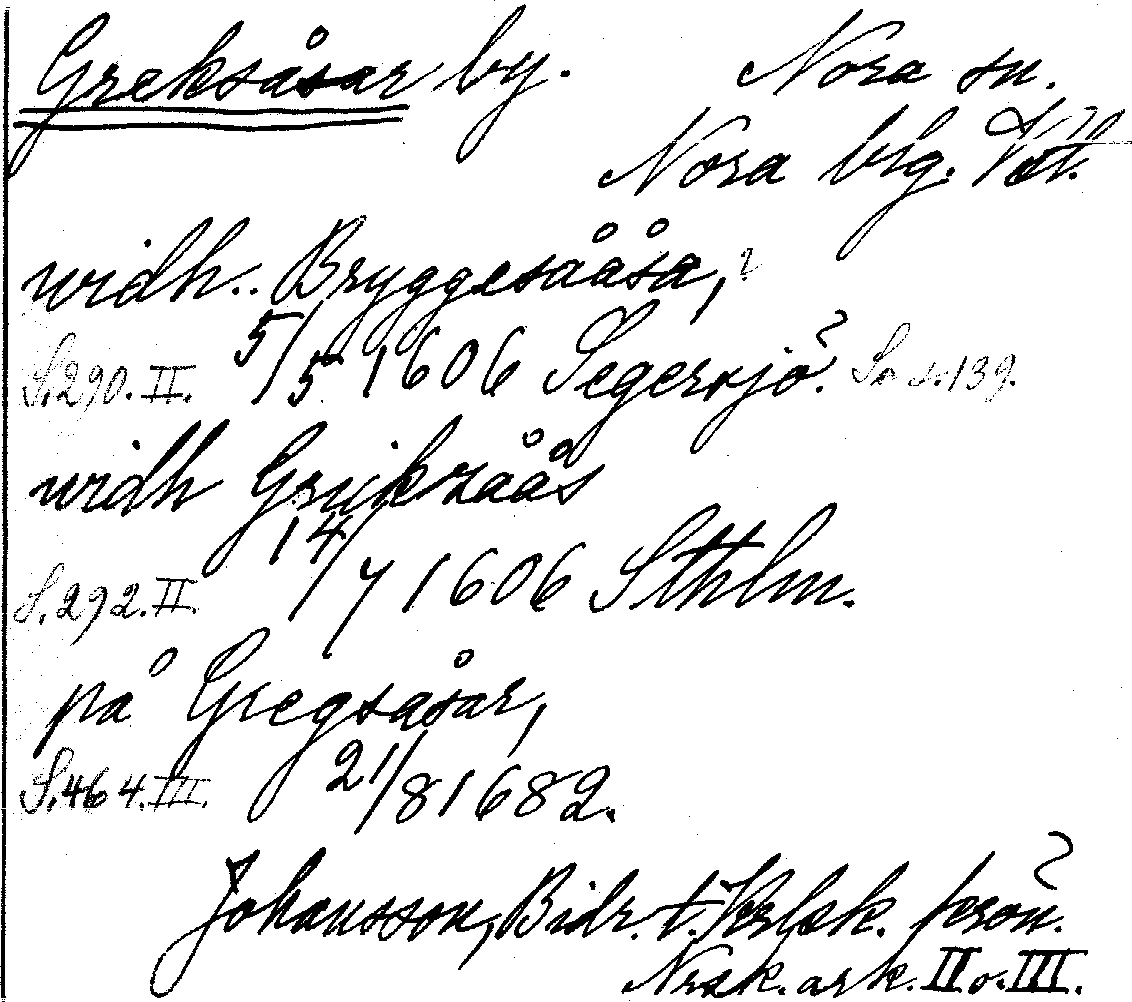 Greksåsar by. Nora sn.
Nora blg. Vstm.
widh.. Bryggesååsa, ?
S. 290. II. 5/5 1606 Segersjö. So s. 139.
widh Grijkzåås
S. 292. II. 14/7 1606 Sthlm.
på Gregsåsar,
S. 464. III. 21/8 1682.
Johansson, Bidr. t. Krlsk.
Nrsk. ark. II o. III.